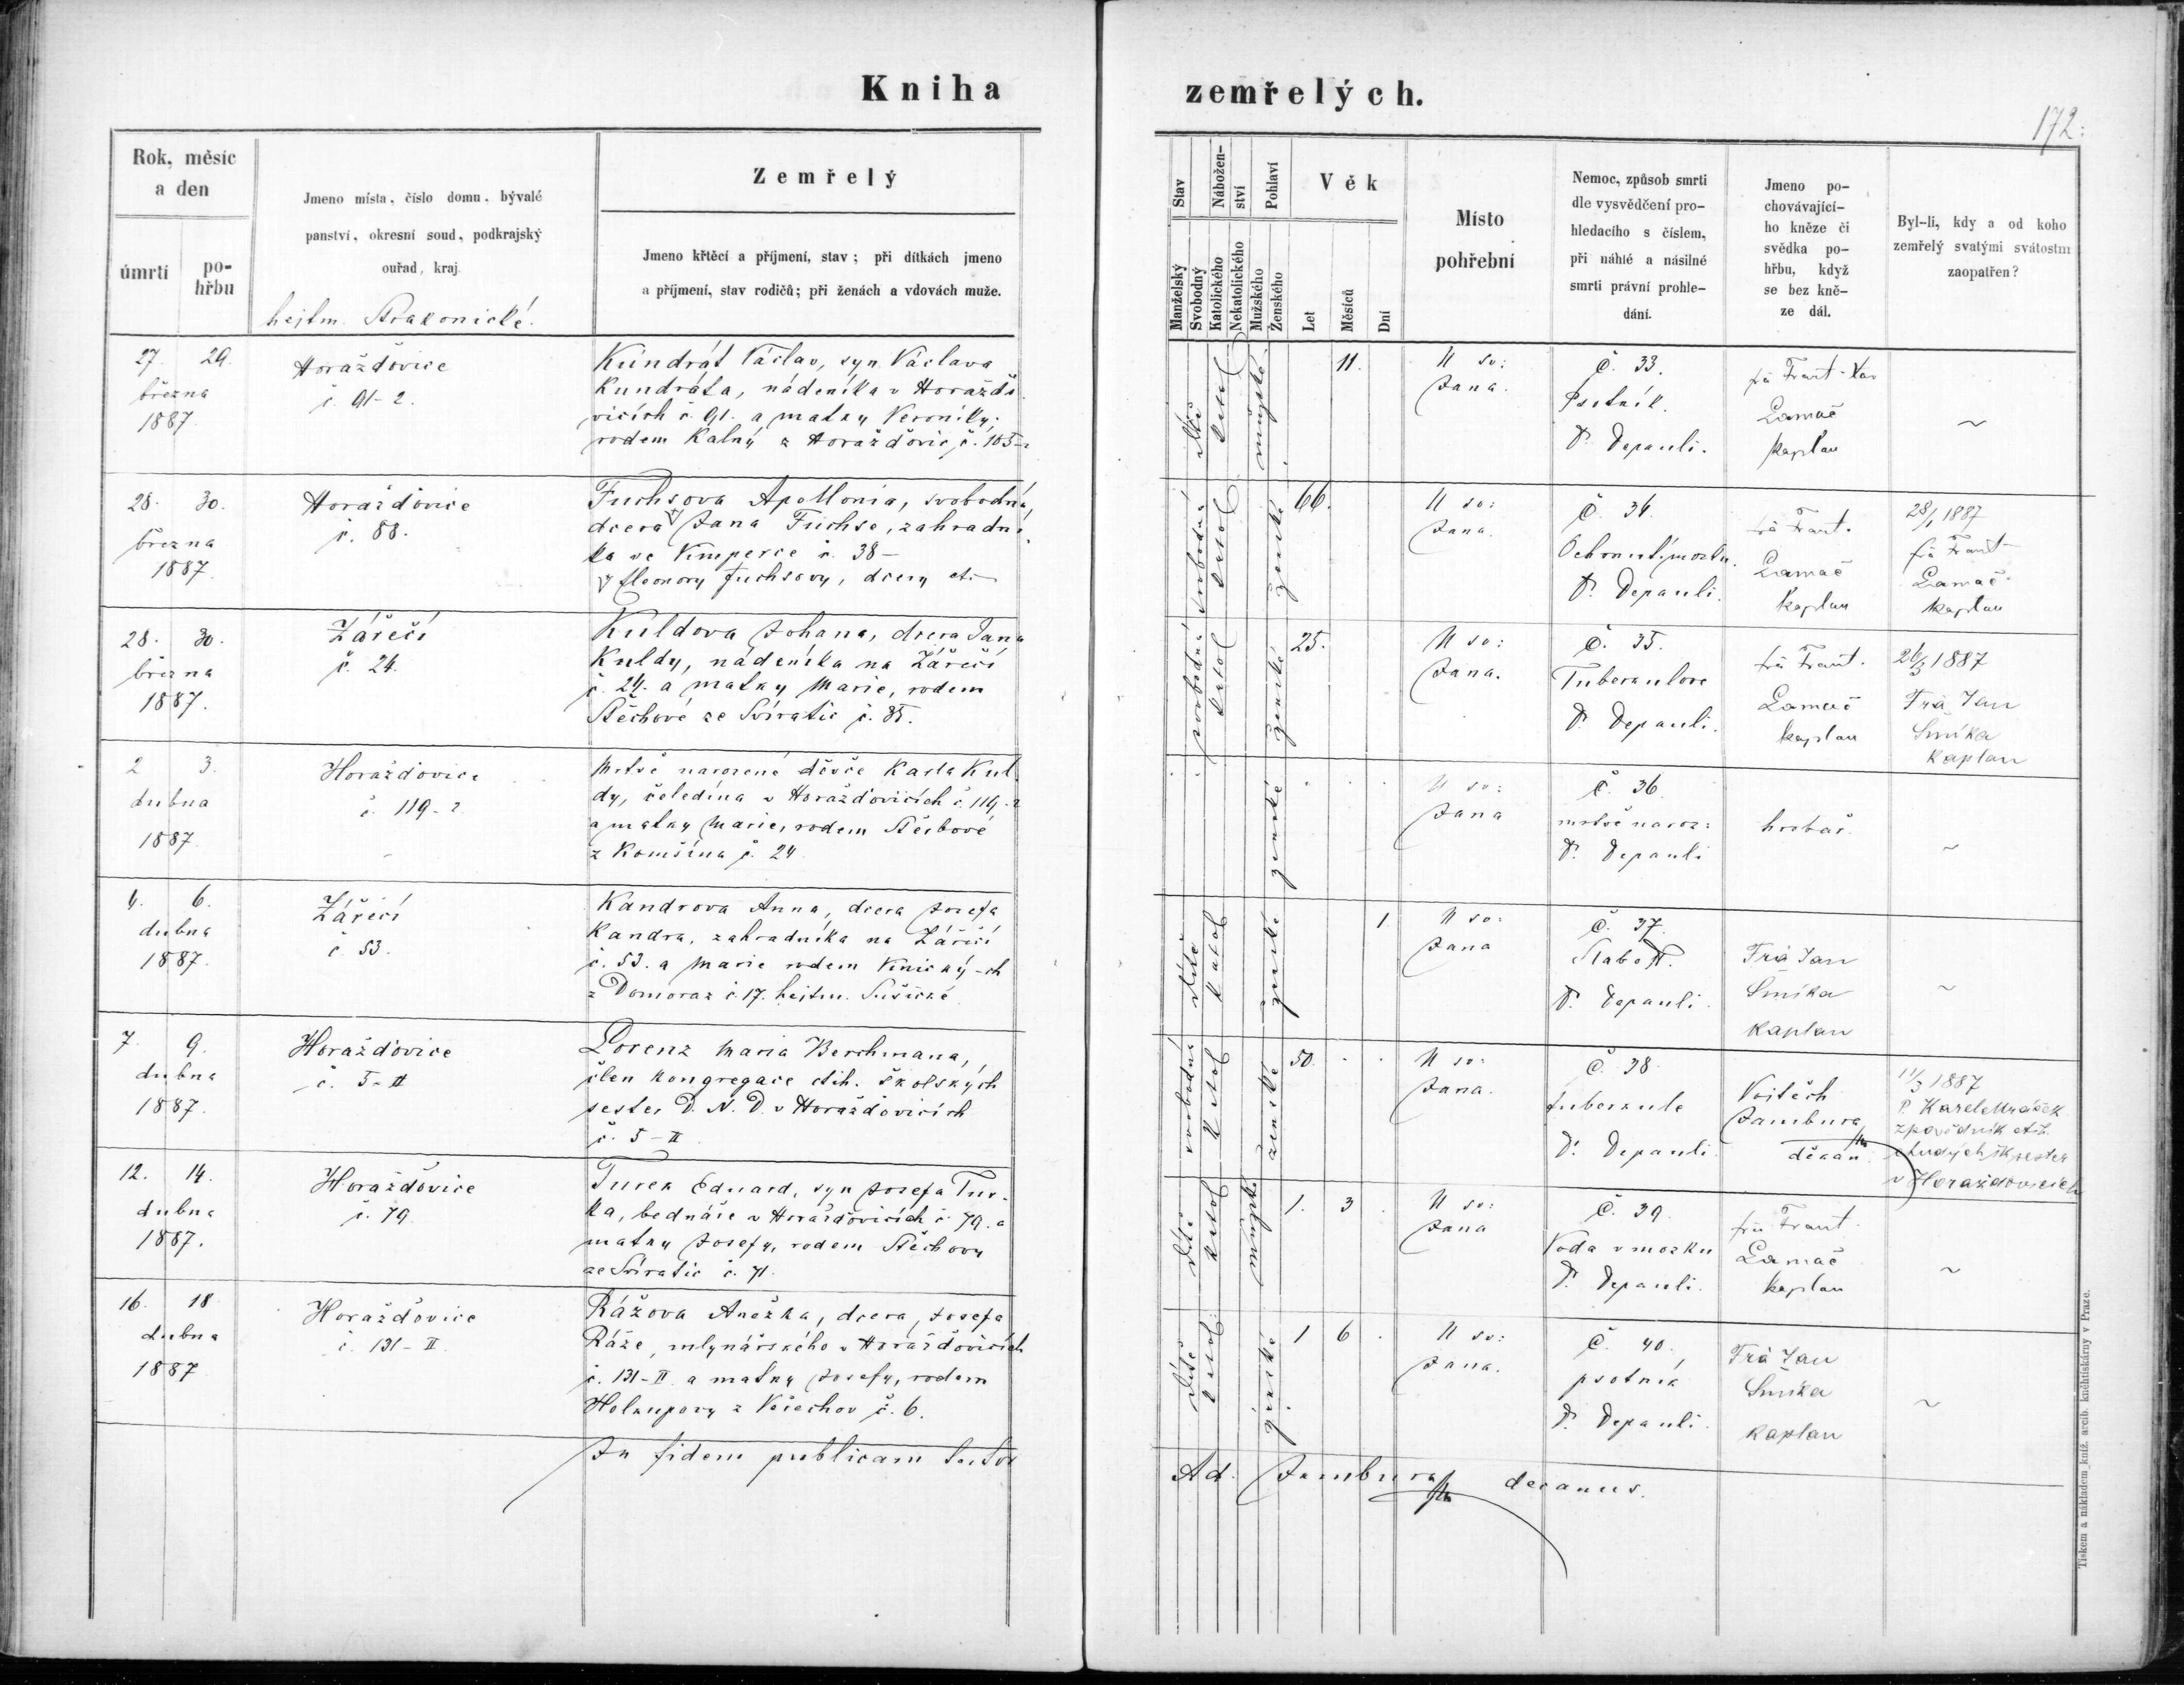 Kniha
zemřelých.
172.
Rok, měsíc
a den
úmrtí
po-
hřbu
Jmeno místa, číslo domu, bývalé
panství, okresní soud, podkrajský
ouřad, kraj.
hejtm. Strakonické.
Zemřelý
Jmeno křtěcí a příjmení, stav; při dítkách jmeno
a příjmení, stav rodičů; při ženách a vdovách muže.
Stav
Manželský
Svobodný
Nábožen-
ství
Katolického
Nekatolického
Pohlaví
Mužského
Ženského
Věk
Let
Měsíců
Dní
Místo
pohřební
Nemoc, způsob smrti
dle vysvědčení pro-
hledacího s číslem,
při náhlé a násilné
smrti právní prohle-
dání.
Jmeno po-
chovávající-
ho kněze či
svědka po-
hřbu, když
se bez kně-
ze dál.
Byl-li, kdy a od koho
zemřelý svatými svátostmi
zaopatřen?
27. 29.
března
1887.
Horažďovice
č. 91-2.
Kundrát Václav, syn Václava
Kundráta, nádeníka v Horažďo-
vicích č. 91. a matky Veroniky,
rodem Kalný z Horažďovic, č. 105-2
dítě
katol
mužské
11.
U sv:
Jana.
Č. 33.
Psotník.
Dr. Depauli.
Frant. Xav
Lamač
kaplan
~
28. 30.
března
1887
Horažďovice
č. 88.
Fuchsova Apollonia, svobodná,
dcera Jana Fuchse, zahradní-
ka ve Kmperce č. 38-
Eleonory Fuchsovy, dcery
svobodná
katol
ženské
66.
U sv:
Jana.
Č. 34.
Ochrnutí mozku.
Dr. Depauli.
Frant.
Lamač
kaplan
28/1 1887
Frant
Lamač
kaplan
28. 30.
března
1887.
Zářečí
č. 24.
Kuldova Johana, dcera Jana
Kuldy, nádeníka na Zářečí
č. 24. a matky Marie, rodem
Štěchové ze Svíratic č. 35.
svobodná
katol
ženské
25.
U sv:
Jana.
Č. 35.
Tuberkulose
Dr. Depauli.
Frant.
Lamač
kaplan
26/3 1887
Jan
Smíka
kaplan
2 3.
dubna
1887.
Horažďovice
č. 119-2.
Mrtvě narozené děvče Karla Kul-
dy, čeledína v Horažďovicích č. 119-2
a matky Marie, rodem
z Komšína č. 24
ženské
U sv:
Jana
Č. 36.
mrtvě naroz:
Dr. Depauli
hrobař.
~
4. 6.
dubna
1887.
Zářečí
č. 53.
Kandrova Anna, dcera Josefa
Kandra, zahradníka na Zářečí
č. 53. a Marie rodem
z Domoraz č. 17. hejtm. Sušické
dítě
katol
ženské
1.
U sv:
Jana
Č. 37.
Slabost.
Dr. Depauli.
Jan
Smíka
kaplan
~
7. 9.
dubna
1887.
Horažďovice
č. 5-II
Lorenz Maria Berchmana,
člen kongregace ctih. školských
sester D. N. D. v Horažďovicích
č. 5-II
svobodná
katol
ženské
50.
U sv:
Jana.
Č. 38.
tuberkule
Dr. Depauli
Vojtěch
Jambura
děkan.
11/3 1887
P. Karel Mráček
zpovědník ctih.
chudých šk. sester
v Horažďovicích
12. 14.
dubna
1887.
Horažďovice
č. 79.
Turek Eduard, syn Josefa Tur-
ka, bednáře v Horažďovicích č. 79. a
matky Josefy, rodem Štěchovy
ze Svíratic č. 71.
dítě
katol
mužské
1. 3
U sv:
Jana
Č. 39.
Voda v mozku
Dr. Depauli.
Frant.
Lamač
kaplan
~
16. 18
dubna
1887
Horažďovice
č. 131-II
Rážova Anežka, dcera, Josefa
Ráže, mlynářského v Horažďovicích
č. 131-II. a matky Josefy, rodem
Holkupovy z Věřechov č. 6.
dítě
katol
ženské
1 6
U sv:
Jana.
Č. 40.
psotník
Dr. Depauli.
Jan
Smíka
kaplan
~
In fidem publicam
Ad. Jambura decanus.
Tiskem a nákladem kníž. arcib. knihtiskárny v Praze.